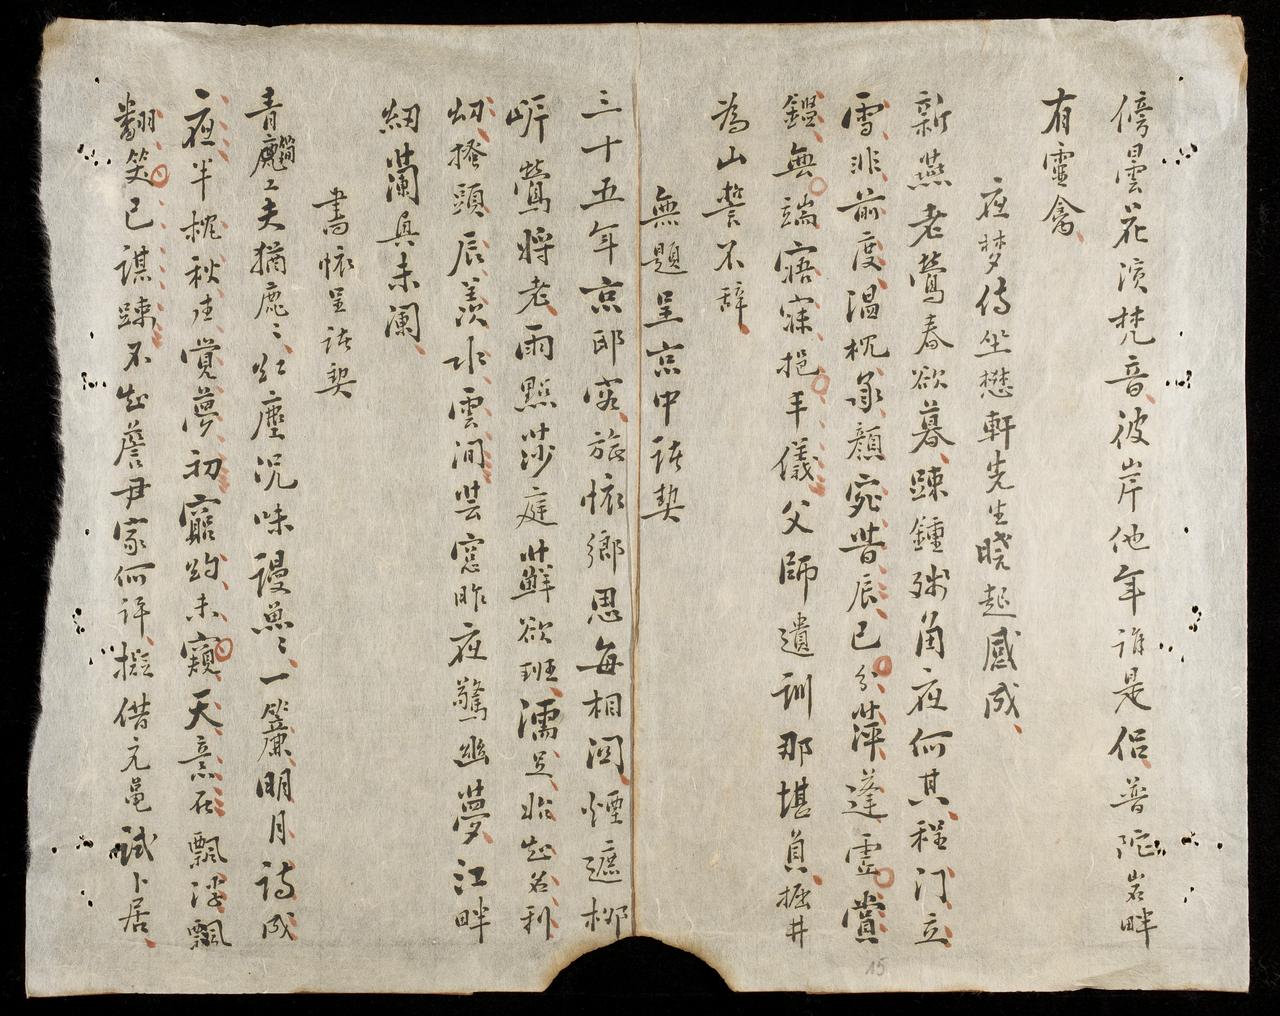 傍曇花演梵音彼岸他年誰是侶普陀岩畔
有靈禽
夜梦侍坐懋軒先生曉起感成
新燕老鶯春欲暮踈鍾殘角夜何其程门立
雪非前度温枕承顏宛昔辰已分萍蓬虛賞
鑑無端寤寐挹丰儀父師遺訓那堪負掘井
為山誓不辭
無題呈京中諸契
三十五年京邸客旅懷鄉思每相関煙遮柳
岸鶯將老雨點莎庭蘚欲班濡足始知名利
幼搔頭辰羡水雲间芸窓昨夜驚幽夢江畔
紉蘭具未闌
書懷呈諸契
青簡工夫猶鹿々紅塵况味謾魚々一簾明月詩成
夜半枕秋声覺夢初窮约未窺天意在飄浮飄
翻笑已謀踈不知詹尹家何许擬借元黾試卜居